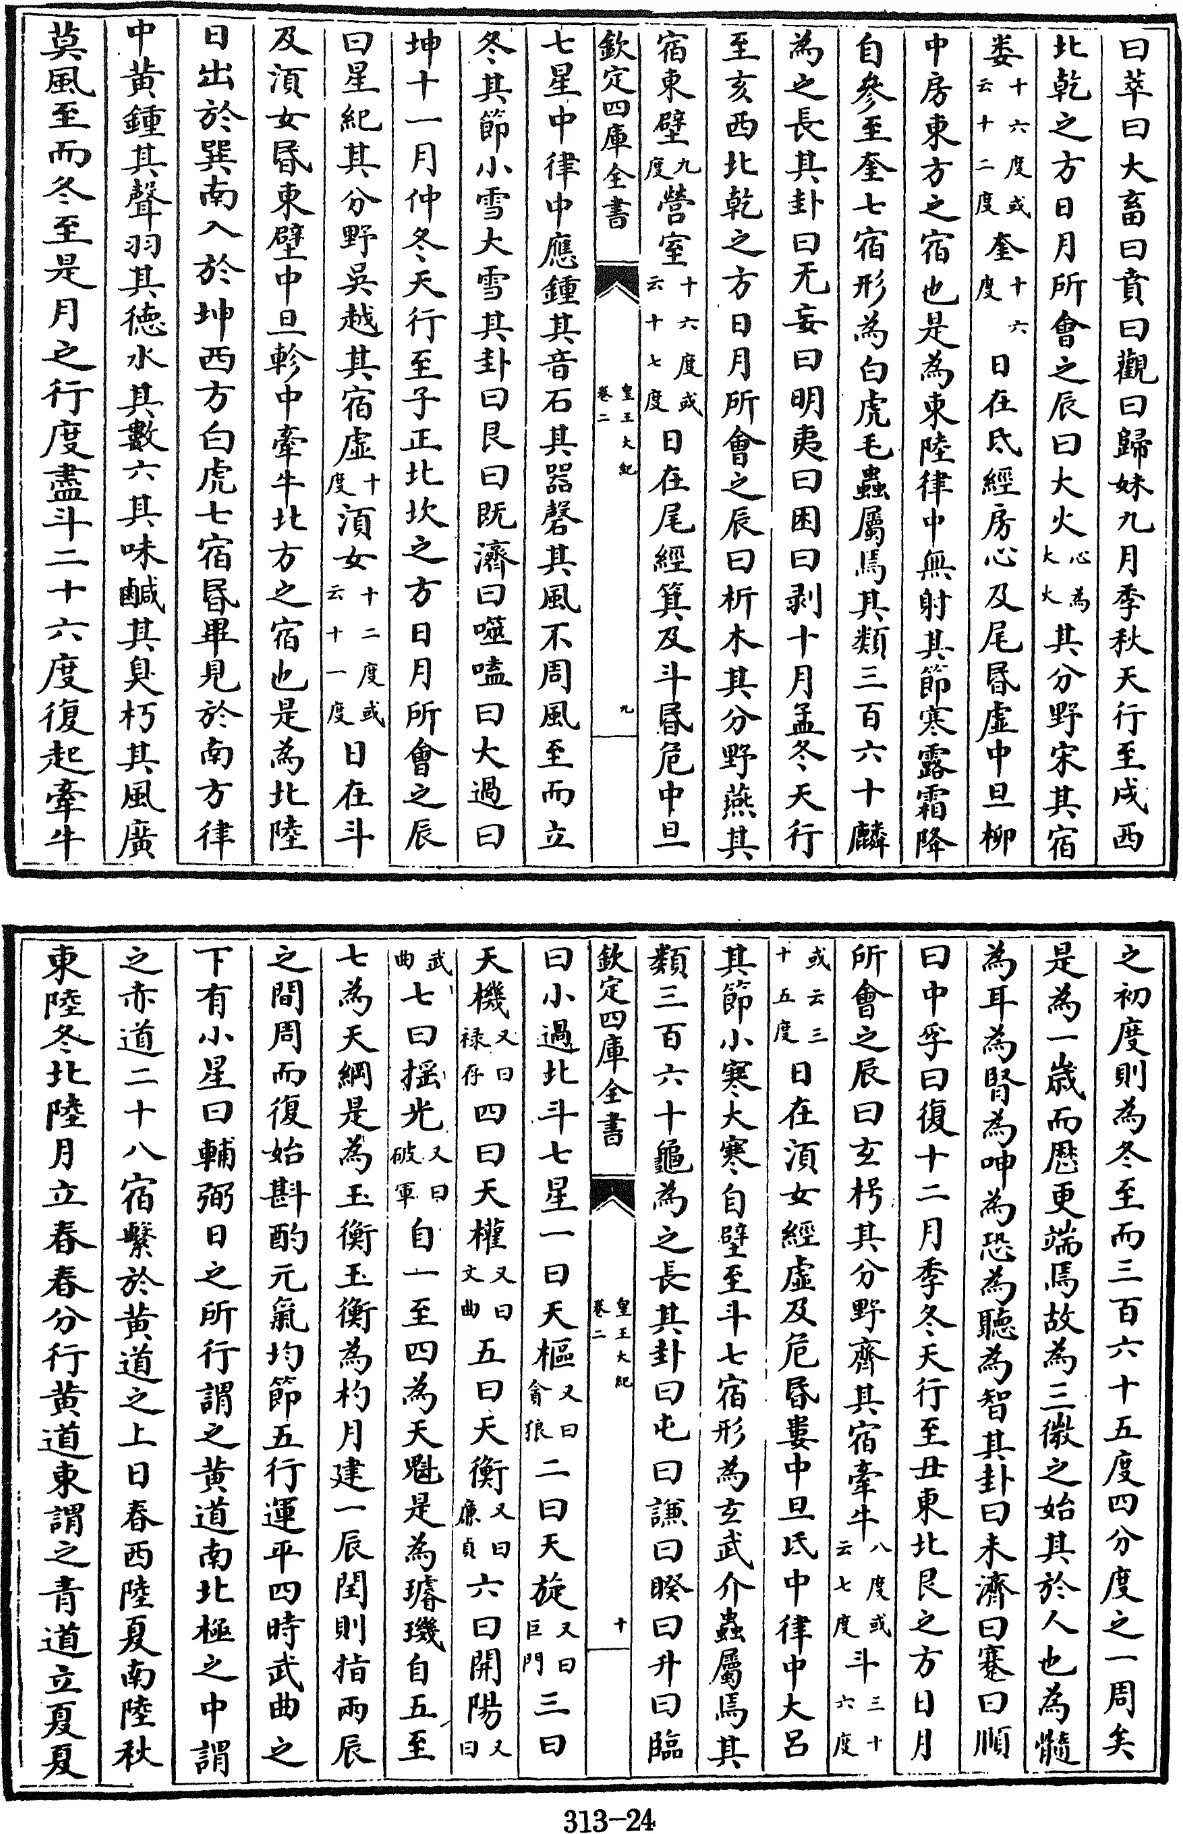 曰萃曰大畜曰賁曰觀曰歸妹九月季秋天行至戍西
北乾之方日月所會之辰曰大火心為大火其分野宋其宿
婁十六度或云十二度奎十六度日在氐經房心及尾昏虛中旦柳
中房東方之宿也是為東陸律中無射其節寒露霜降
自參至奎七宿形為白虎毛蟲屬焉其類三百六十麟
為之長其卦曰无妄曰明夷曰困曰剥十月孟冬天行
至亥西北乾之方日月所會之辰曰析木其分野燕其
宿東壁九度營室十六度或云十七度日在尾經箕及斗昏危中旦
欽定四庫全書 皇王大紀 卷二 九
七星中律中應鍾其音石其器磬其風不周風至而立
冬其節小雪大雪其卦曰艮曰既濟曰噬嗑曰大過曰
坤十一月仲冬天行至子正北坎之方日月所會之辰
曰星紀其分野吳越其宿虛十度湏女十二度或云十一度日在斗
及湏女昏東壁中旦軫中牽牛北方之宿也是為北陸
日出於巽南入於坤西方白虎七宿昏畢見於南方律
中黄鍾其聲羽其德水其數六其味鹹其臭朽其風廣
莫風至而冬至是月之行度盡斗二十六度復起牽牛
之初度則為冬至而三百六十五度四分度之一周矣
是為一歲而厯更端焉故為三微之始其於人也為髓
為耳為腎為呻為恐為聽為智其卦曰未濟曰蹇曰順
曰中孚曰復十二月季冬天行至丑東北艮之方日月
所會之辰曰玄枵其分野齊其宿牽牛八度或云七度斗三十六度
或云三十五度日在湏女經虛及危昏婁中旦氐中律中大呂
其節小寒大寒自壁至斗七宿形為玄武介蟲屬焉其
類三百六十龜為之長其卦曰屯曰謙曰睽曰升曰臨
欽定四庫全書 皇王大紀 卷二 十
曰小過北斗七星一曰天樞又曰貪狼二曰天旋又曰巨門三曰
天機又曰禄存四曰天權又曰文曲五曰天衡又曰廉貞六曰開陽又曰
武曲七曰揺光又曰破軍自一至四為天魁是為璿璣自五至
七為天綱是為玉衡玉衡為杓月建一辰閏則指兩辰
之間周而復始斟酌元氣均節五行運平四時武曲之
下有小星曰輔弼日之所行謂之黄道南北極之中謂
之赤道二十八宿繫於黄道之上日春西陸夏南陸秋
東陸冬北陸月立春春分行黄道東謂之青道立夏夏
313-24